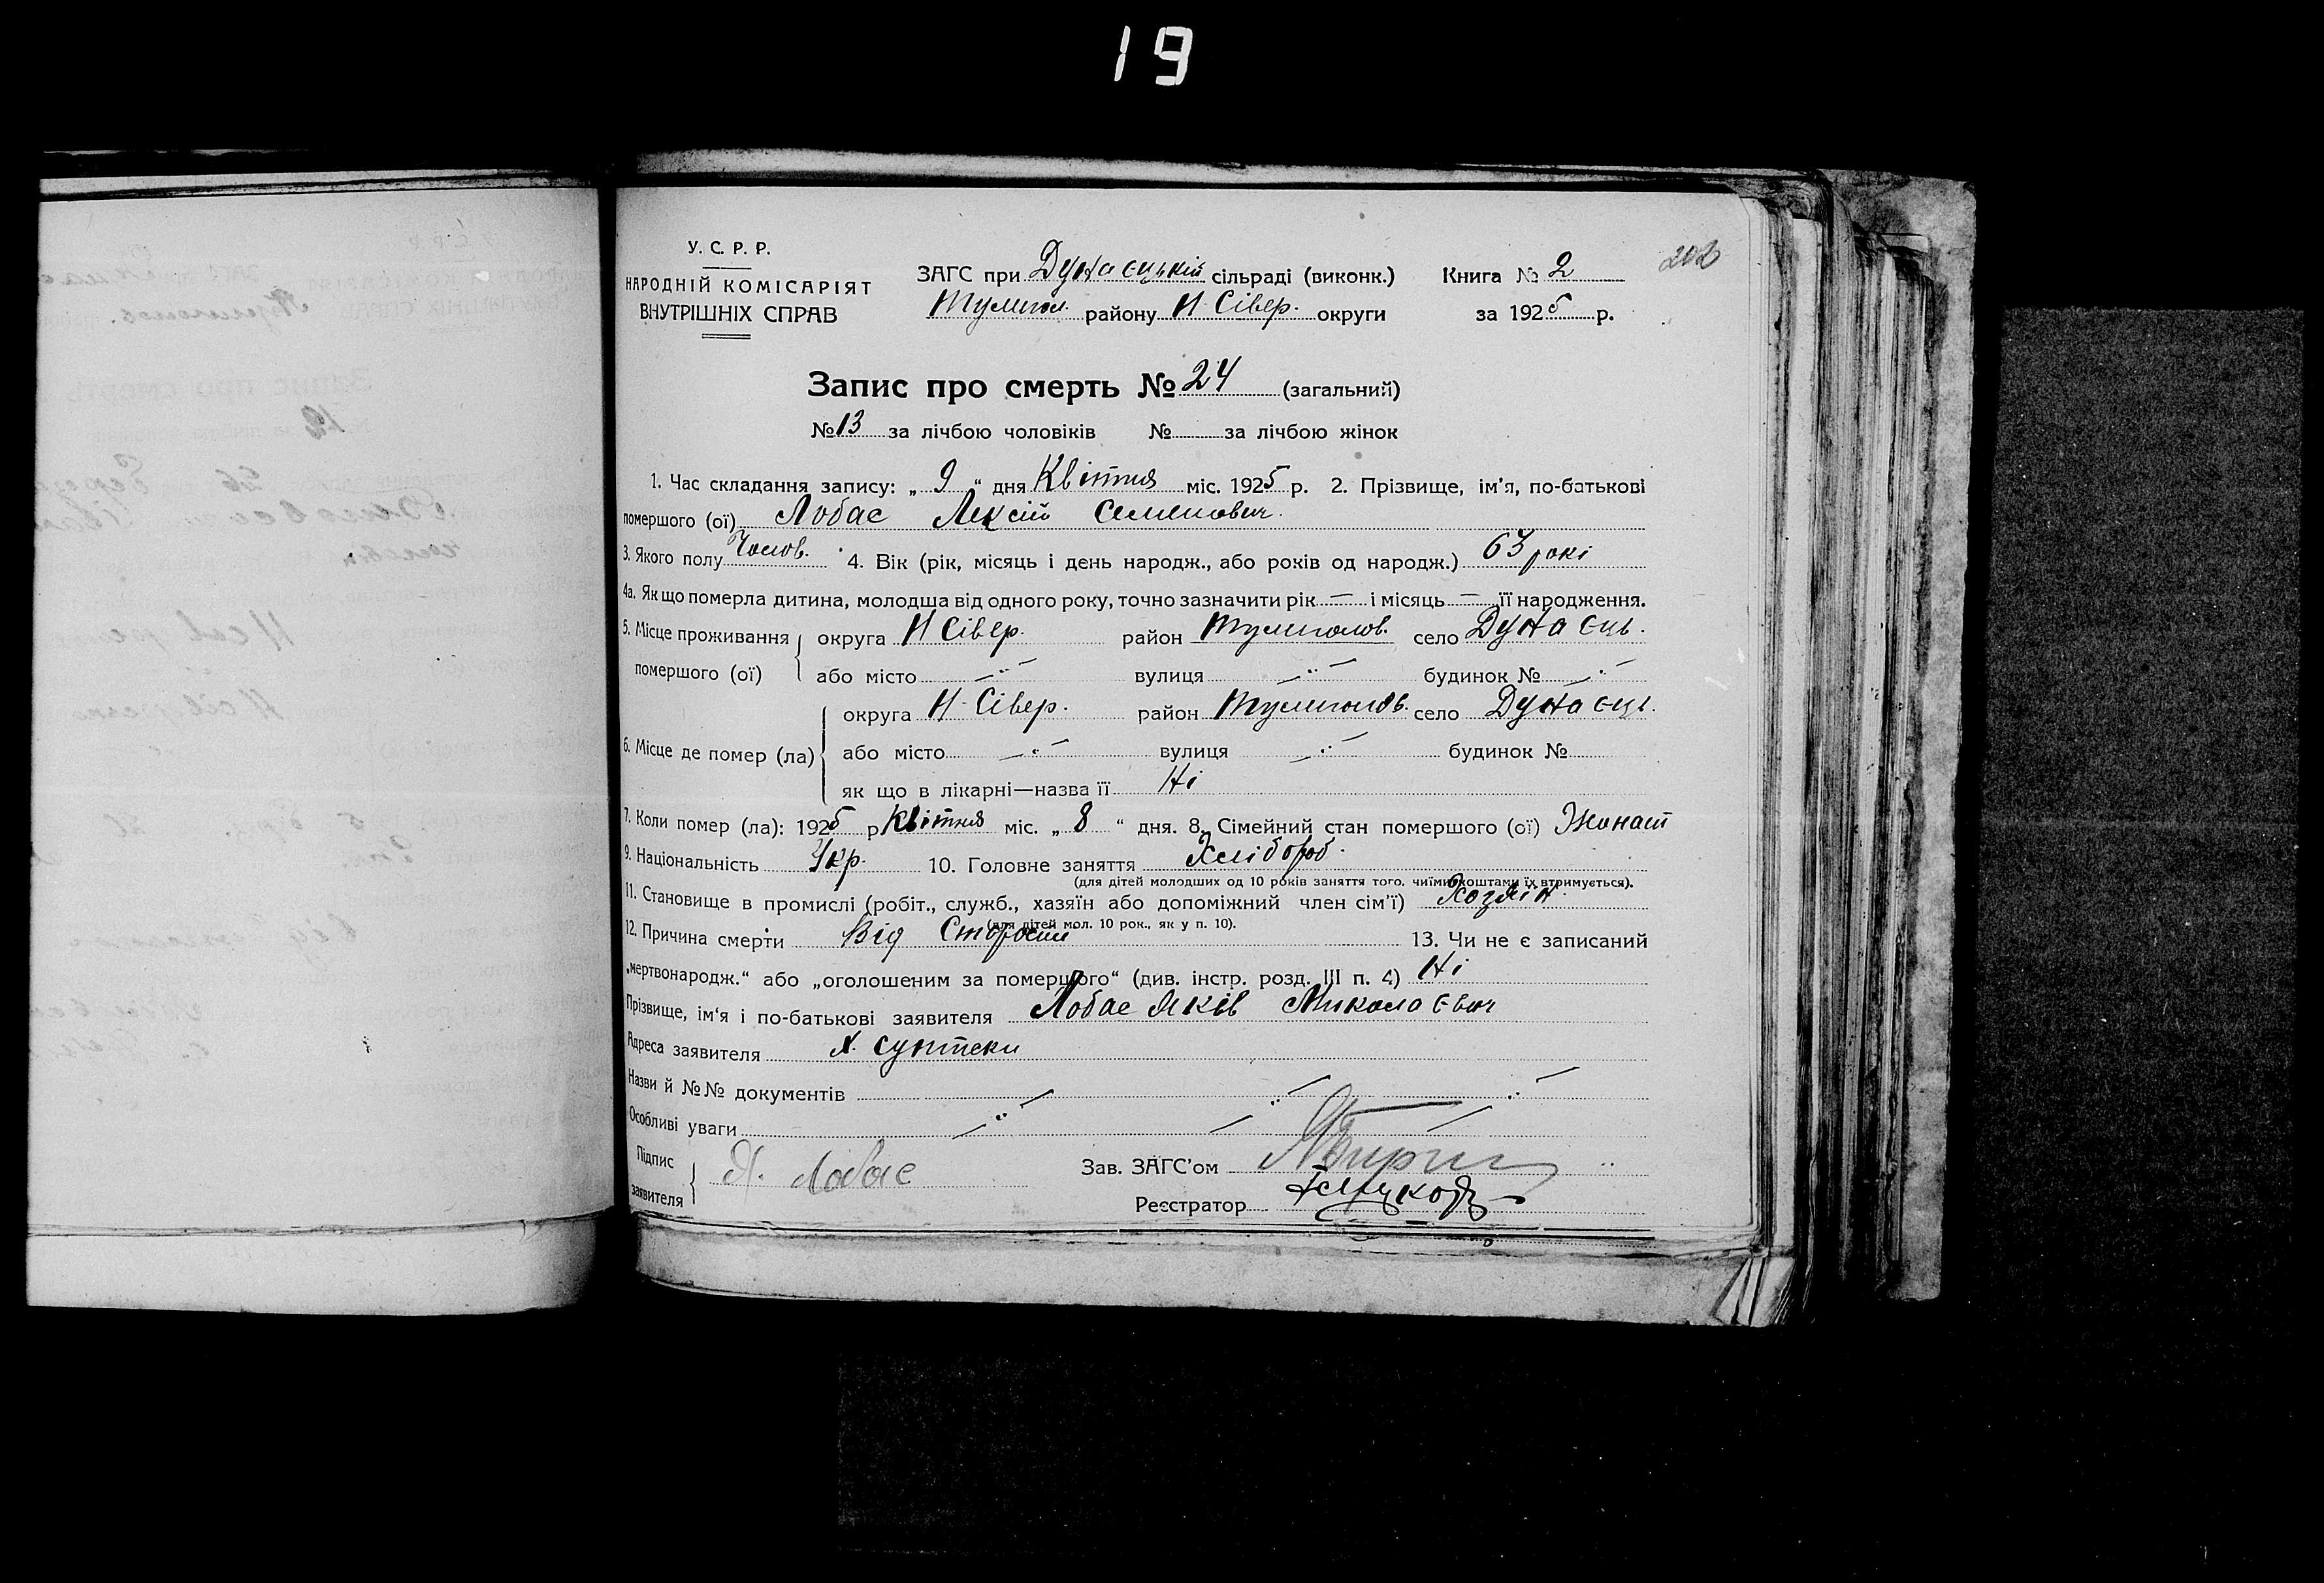 19
202
У. С. Р. Р.
НАРОДНІЙ КОМІСАРІЯТ
ВНУТРІШНІХ СПРАВ
ЗАГС при Дунаєцькій сільраді (виконк.) Книга № 2
Тулигол. району Н-Сівер. округи за 1925 р.
Запис про смерть № 24 (загальний)
№ 13 за лічбою чоловіків № за лічбою жінок
1. Час складання запису: „ 9 “ дня Квітня міс. 1925 р. 2. Прізвище, ім'я, по-батькові
помершого (ої) Лобас Лексій Семенович.
3. Якого полу Чолов. 4. Вік (рік, місяць і день народж., або років од народж.) 63 рокі
4а. Якщо померла дитина, молодша від одного року, точно зазначити рік — і місяць — її народження.
5. Місце проживання помершого (ої) округа Н Сівер. район Тулиголов. село Дунаєць.
або місто вулиця будинок №
6. Місце де помер (ла) округа Н-Сівер. район Тулиголов. село Дунаєць.
або місто вулиця будинок №
як що в лікарні—назва її Ні
7. Коли помер (ла): 1925 р Квітня міс. „ 8 “ дня. 8. Сімейний стан помершого (ої) Жонат
9. Національність Укр. 10. Головне заняття Хлібороб.
(для дітей молодших од 10 років заняття того, чиїми коштами їх втримується).
11. Становище в промислі (робіт., служб., хазяїн або допоміжний член сім'ї) Хозяін
(для дітей мол. 10 рок., як у п. 10).
12. Причина смерти Від Старости 13. Чи не є записаний
„мертвонародж.“ або „оголошеним за помершого“ (див. інстр. розд. III п. 4) Ні
Прізвище, ім'я і по-батькові заявителя Лобас Яків Миколаєвич
Адреса заявителя х.
Назви й №№ документів
Особливі уваги
Підпис заявителя Я. Лобас Зав. ЗАГС'ом
Реєстратор